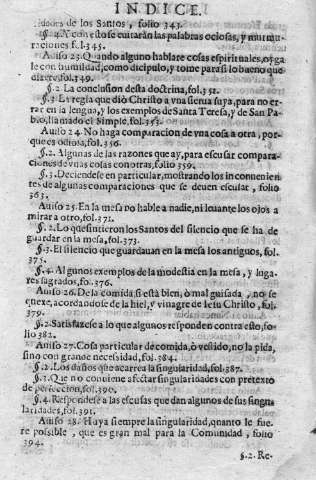 INDICE.
ridores de los Santos, folio 343.
§.4. Y con esto se euitarân las palabras ociosas, y murmu-
raciones f.l.345.
Auiso 23. Quando alguno hablare cosas espirituales, oyga
le con humildad, como dicipulo, y tome para si lo bueno que
dixere, fol.349.
§.2. La conclusion desta doctrina, fol.351.
§.3. Es regla que diò Christo a vna sierua suya, para no er-
rar en la lengua, y los exemplos de Santa Teresa, y de San Pa-
blo, llamado el Simple, fol.353.
Auiso 24. No haga comparacion de vna cosa a otra, por-
que es odiosa, fol.356.
§.2. Algunas de las razones que ay, para escusar compara-
ciones de vnas cosas con otras, folio 359.
§.3. Deciendese en particular, mostrando los inconuenien-
tes de algunas comparaciones que se deuen escusar, folio
363.
Auiso 25. En la mesa no hable a nadie, ni leuante los ojos a
mirar a otro, fol.371.
§.2. Lo que sintieron los Santos del silencio que se ha de
guardar en la mesa, fol.373.
§.3. El silencio que guardauan en la mesa los antiguos, fol.
375.
§.4. Algunos exemplos de la modestia en la mesa, y luga-
res sagrados, fo.376.
Auiso 26. De la comida si està bien, ò mal guisada, no se
quexe, acordandose de la hiel, y vinagre de Iesu Christo, fol.
379.
§.2. Satisfazese a lo que algunos responden contra esto, fo-
lio 382.
Auiso 27. Cosa particular de comida, ò vestido, no la pida,
sino con grande necessidad, fol.384.
§.2. Los daños que acarrea la singularidad, fol.387.
§.3. Que no conuiene afectar singularidades con pretexto
de perfeccion, fol.390.
§.4. Respondese a las escusas que dan algunos de sus singu-
laridades, fol.391.
Auiso 28. Huya siempre la singularidad, quanto le fue-
re possible, que es gran mal para la Comunidad, folio
394.
§.2. Re-